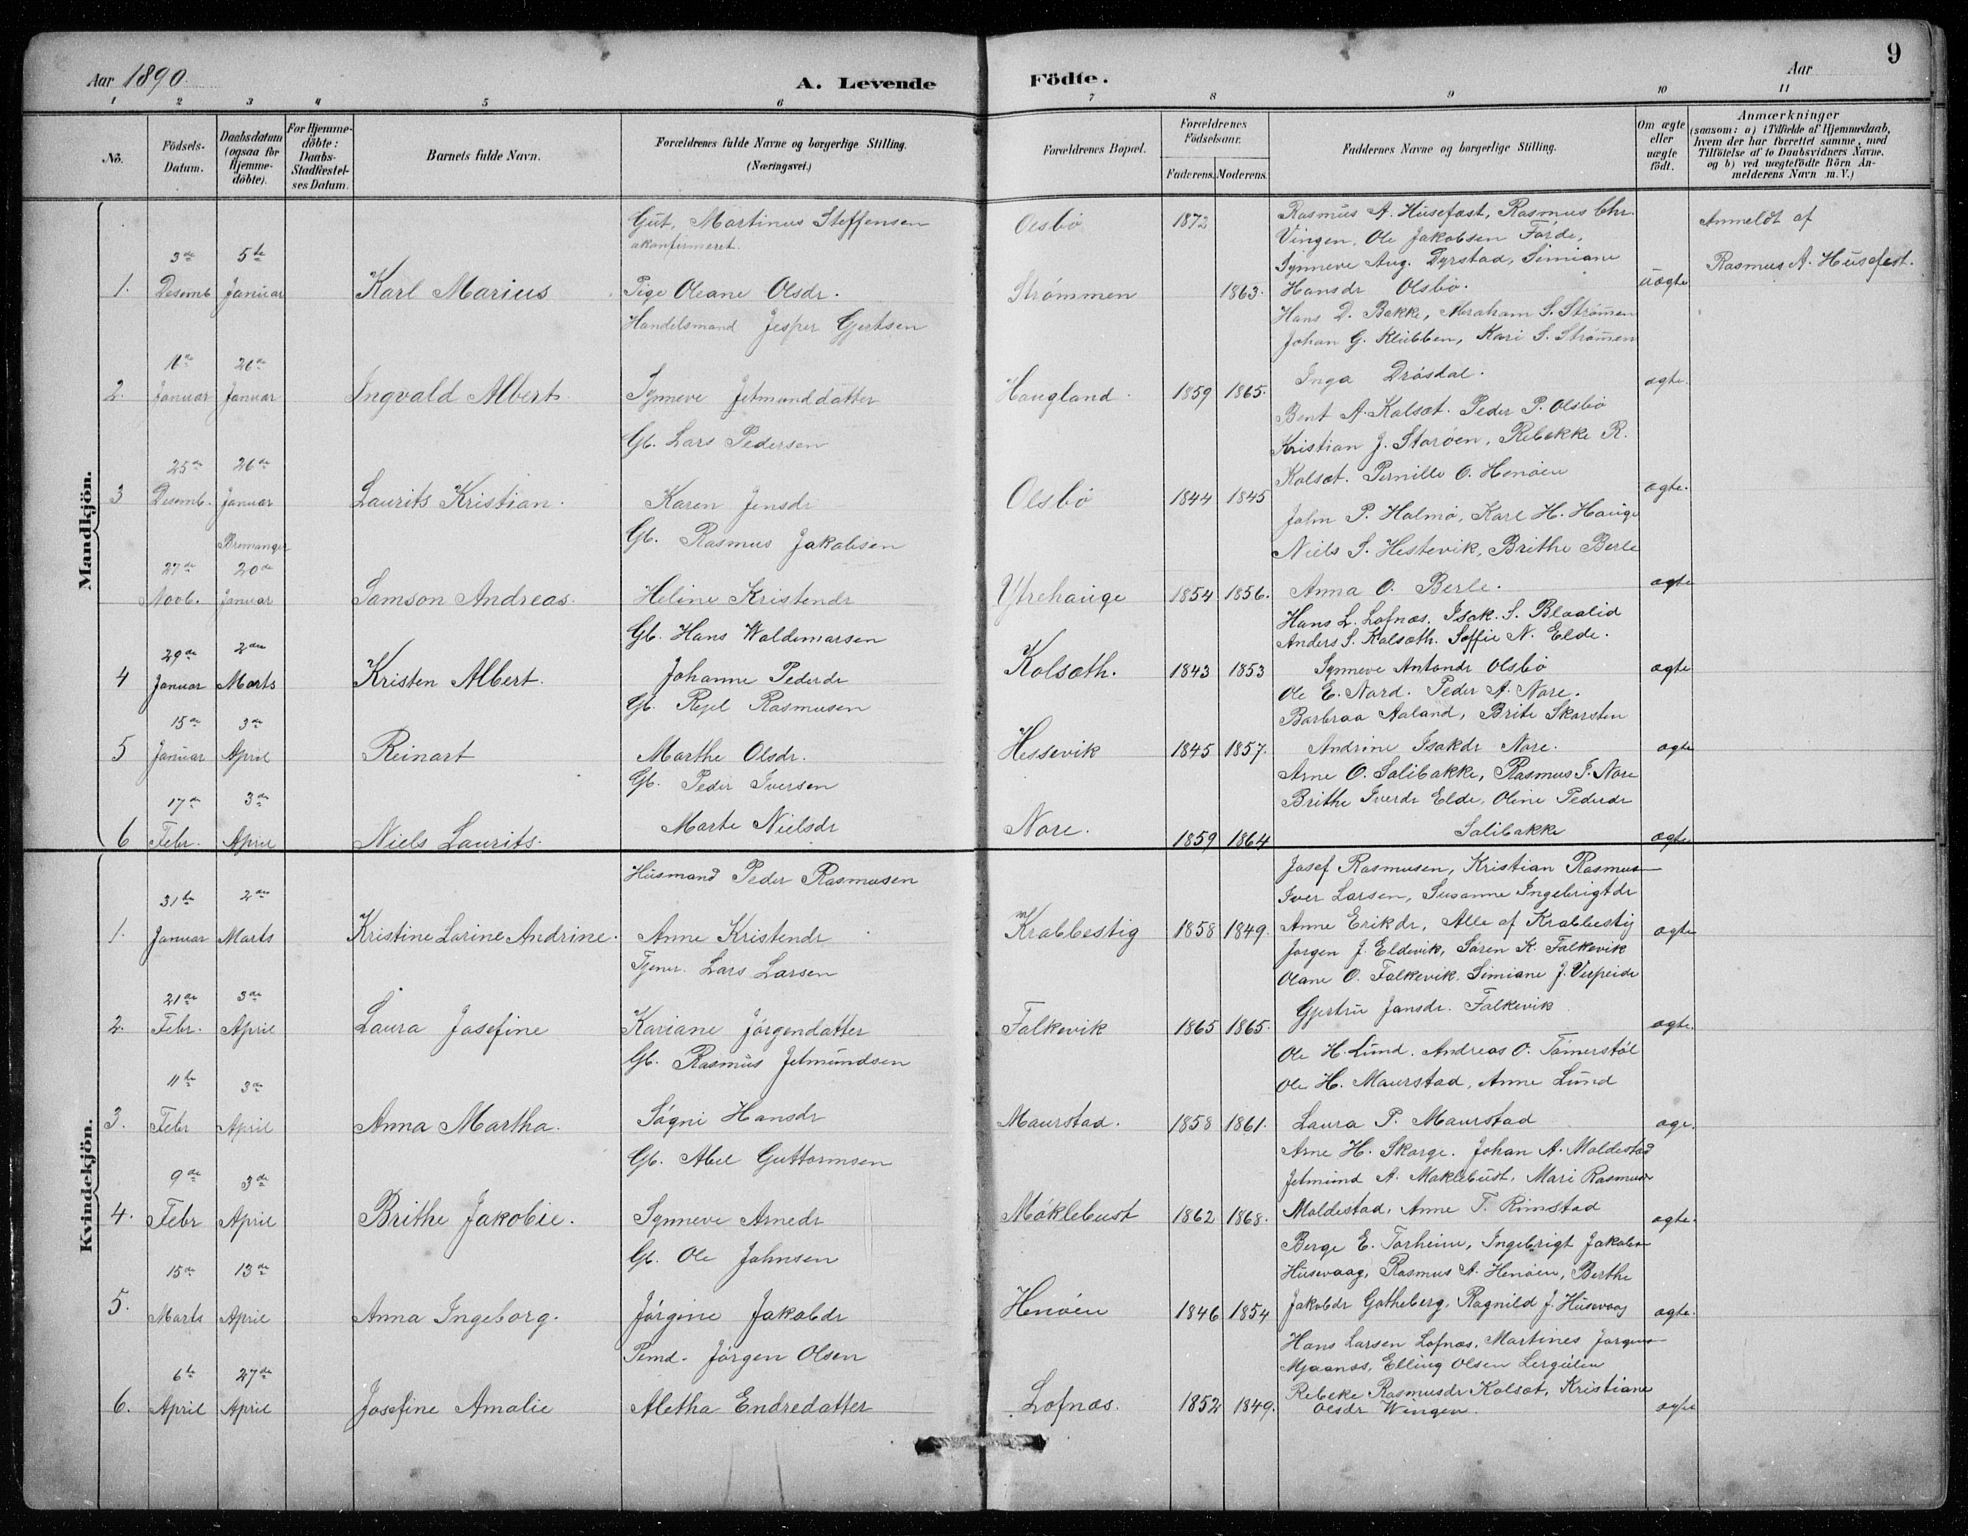 Aar 1890.
A. Levende Födte.
Aar
9
1 2 3 4 5 6 7 8 9 10 11
No.
Födsels-Datum.
Daabsdatum (ogsaa for Hjemme-döbte).
For Hjemme-döbte: Daabs-Stadfæstel-ses Datum.
Barnets fulde Navn.
Forældrenes fulde Navne og borgerlige Stilling. (Næringsvei.)
Forældrenes Bopæl.
Forældrenes Födselsaar.
Faderens. Moderens.
Faddernes Navne og borgerlige Stilling.
Om ægte eller uægte födt.
Anmærkninger
(saasom: a) i Tilfælde af Hjemmedaab,
hvem der har forrettet samme, med
Tilföielse af to Daabsvidners Navne.
og b) ved uægtefödte Börn An-
melderens Navn m. V.)
Mandkjön.
1. 3de Desemb. 5te Januar
Karl Marius
Gut, Martinus Steffensen
ukonfirmeret.
Pige Oleane Olsdr.
Olsbø
Strømmen
1872 1863.
Rasmus A. Husefæst, Rasmus Chr.
Vingen, Ole Jakobsen Førde,
Synneve Aug. Dyrstad, Simiane
Hansdr Olsbø.
uægte
Anmeldt af
Rasmus A. Husefest.
2. 11te Januar 26de Januar
Ingvald Albert.
Handelsmand Jesper Gjertsen
Synneve Jetmunddatter
Haugland.
1859 1865.
Hans D. Bakke, Abraham S. Strømmen
Johan G. Klubben, Kari S. Strømmen
Inga Drøsdal.
ægte.
3 25de Desemb. 26de Januar
Laurits Kristian.
Gb. Lars Pedersen
Karen Jensdr
Olsbø
1844 1845
Bent A. Kolsæt. Peder P. Olsbø
Kristian J. Storøen, Rebekke R.
Kolsæt. Pernille O. Henøen
ægte.
27de Novb. Bremanger 20de Januar
Samson Andreas.
Gb. Rasmus Jakobsen
Heline Kristendr
Ytrehauge
1854 1856.
John P. Holmø, Karl H. Hauge
Niels S. Hestevik, Brithe Berle
Anna O. Berle.
ægte
4 29de Januar 2den Marts
Kristen Albert.
Gb. Hans Waldemarsen
Johanne Pederdr
Kolsæth.
1843 1853
Hans L. Lofnæs. Isak. S. Blaalid
Anders S. Kolsæth. Soffie N. Elde.
Synneve Antondr Olsbø
ægte
5 15de Januar 3de April
Reinart
Gb. Rasmusen
Marthe Olsdr.
Hessevik
1845 1857.
Ole E. Nord. Peder A. Nore.
Barbraa Aaland, Brite Skorsten
Andrine Isakdr Nore.
ægte
6 17de Febr. 3de April
Niels Laurits.
Gb. Peder Iversen
Marte Nielsdr
Nore.
1859 1864
Arne O. Salibakke, Rasmus I. Nore
Brithe Iverdr Elde, Oline Pederdr
Salibakke
ægte
Kvindekjön.
1. 31te Januar 2den Marts
Kristine Larine Andrine.
Husmand Peder Rasmusen
Anne Kristendr
Krabbestig
1858 1849.
Josef Rasmusen, Kristian Rasmus-
Iver Larsen, Susanne Ingebrigtdr
Anne Erikdr, Alle af Krabbestig
ægte
2. 21de Febr. 3de April
Laura Josefine
Tjener. Lars Larsen
Kariane Jørgendatter
Falkevik
1865 1865.
Jørgen J. Eldevik, Søren K. Falkevik
Olane O. Falkevik. Simiane J. Verpeide
Gjertru Jansdr. Falkevik
ægte.
3. 11te Febr 3de April
Anna Martha.
Gb. Rasmus Jetmundsen
Søgni Hansdr
Maurstad.
1858 1861.
Ole H. Lund. Andreas O. Tømerstøl
Ole H. Maurstad, Anne Lund
Laura P. Maurstad
æge.
4. 9de Febr 3de April
Brithe Jakobie.
Gb. Abel Guttormsen
Synneve Arnedr
Møklebust
1862 1868.
Arne H. Skorge. Johan A. Maldestad
Jetmund A. Møklebust, Mari Rasmusdr
Maldestad, Anne T. Rimstad
ægte.
5. 15de Marts 13de April
Anna Ingeborg.
Gb. Ole Johnsen
Jørgine Jakobdr
Henøen
1846 1854
Børge E. Torheim, Ingebrigt Jakobs-
Husevaag, Rasmus A. Henøen, Berthe
Jakobdr Gotheberg, Ragnild J. Husevaag
ægte.
6. 6te April 27de April
Josefine Amalie
Pemd. Jørgen Olsen
Aletha Endredatter
Lofnæs.
1852 1849.
Hans Larsen Lofnæs, Martines Jørgens-
Mjaanæs, Elling Olsen
Rebeke Rasmusdr Kolsæt, Kristiane
Olsdr Wingen.
ægte